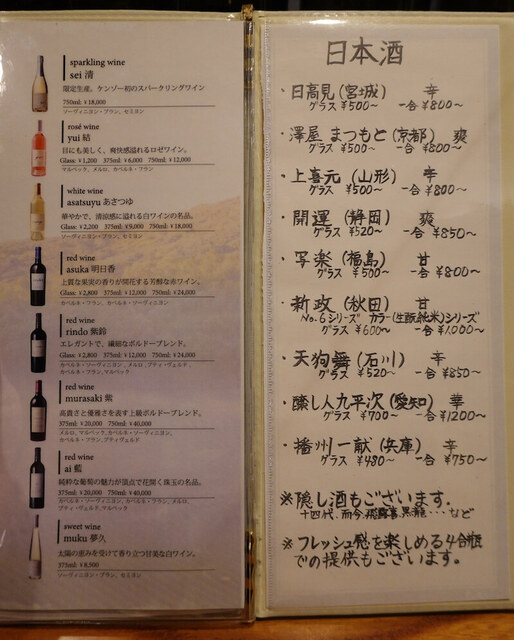 sparkling wine
sei 清
限定生産。ケンゾー初のスパークリングワイン
750ml: ¥18,000
ソーヴィニヨン・ブラン、セミヨン
rosé wine
yui 結
目にも美しく、爽快感溢れるロゼワイン。
Glass: ¥1,200 375ml: ¥6,000 750ml: ¥12,000
マルベック、メルロ、カベルネ・フラン
white wine
asatsuyu あさつゆ
華やかで、清涼感に溢れる白ワインの名品。
Glass: ¥2,200 375ml: ¥9,000 750ml: ¥18,000
ソーヴィニヨン・ブラン、セミヨン
red wine
asuka 明日香
上質な果実の香りが開花する芳醇な赤ワイン。
Glass: ¥2,800 375ml: ¥12,000 750ml: ¥24,000
カベルネ・フラン、カベルネ・ソーヴィニヨン
red wine
rindo 紫鈴
エレガントで、繊細なボルドーブレンド。
Glass: ¥2,800 375ml: ¥12,000 750ml: ¥24,000
カベルネ・ソーヴィニヨン、メルロ、プティ・ヴェルド、
カベルネ・フラン、マルベック
red wine
murasaki 紫
高貴さと優雅さを表す上級ボルドーブレンド。
375ml: ¥20,000 750ml: ¥40,000
メルロ、マルベック、カベルネ・ソーヴィニヨン、
カベルネ・フラン、プティヴェルド
red wine
ai 藍
純粋な葡萄の魅力が頂点で花開く珠玉の名品。
375ml: ¥20,000 750ml: ¥40,000
カベルネ・ソーヴィニヨン、カベルネ・フラン、メルロ、
プティ・ヴェルド、マルベック
sweet wine
muku 夢久
太陽の恵みを受けて香り立つ甘美な白ワイン。
375ml: ¥8,500
ソーヴィニヨン・ブラン、セミヨン
日本酒
・日高見(宮城) 辛
グラス ¥500~ 一合 ¥800~
・澤屋 まつもと(京都) 爽
グラス ¥500~ 一合 ¥800~
・上喜元(山形) 辛
グラス ¥500~ 一合 ¥800~
・開運(静岡) 爽
グラス ¥520~ 一合 ¥850~
・写楽(福島) 甘
グラス ¥500~ 一合 ¥800~
・新政(秋田) 甘
No.6シリーズ カラー(生酛純米)シリーズ
グラス ¥600~ 一合 ¥1,000~
・天狗舞(石川) 辛
グラス ¥520~ 一合 ¥850~
・醸し人九平次(愛知) 華
グラス ¥700~ 一合 ¥1200~
・播州一献(兵庫) 辛
グラス ¥480~ 一合 ¥750~
※隠し酒もございます.
十四代. 而今. 飛露喜. 黒龍・・・など
※フレッシュ感を楽しめる4合瓶
での提供もございます。